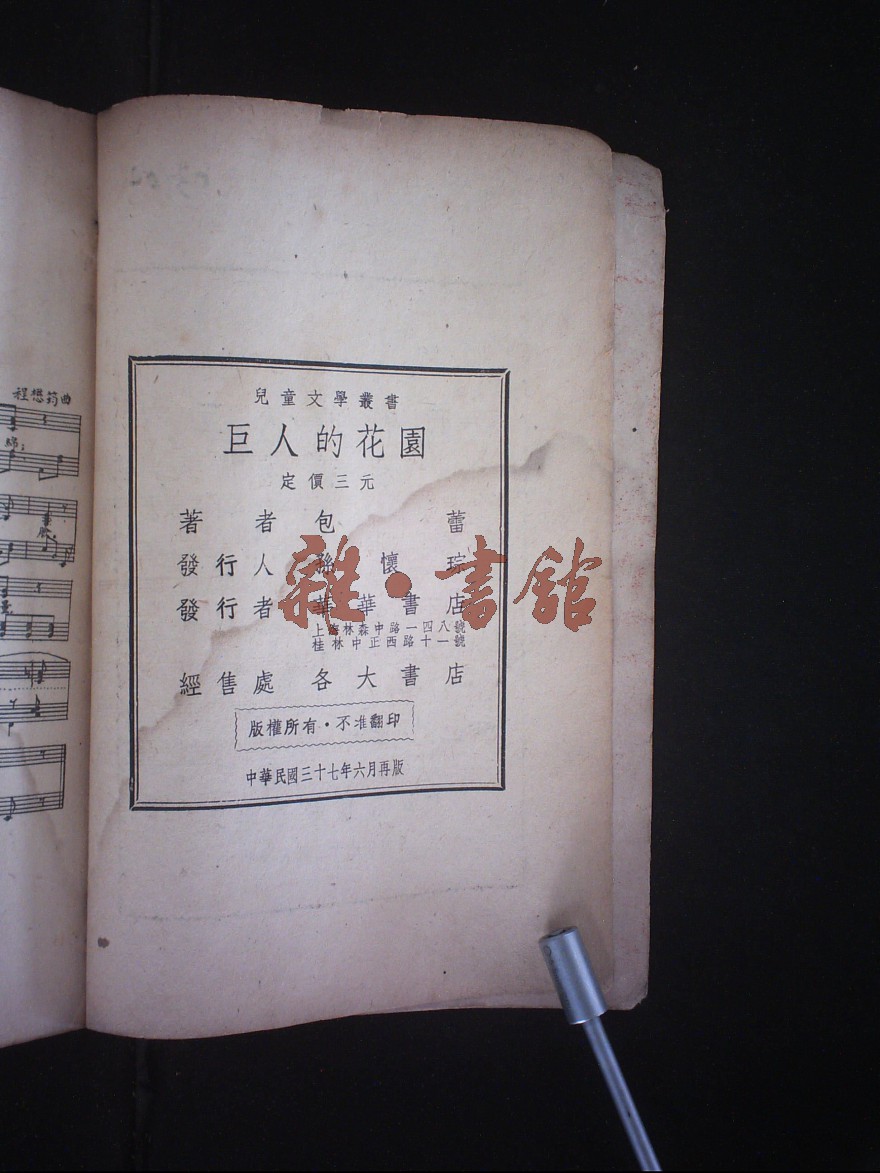 兒童文學叢書
巨人的花園
定價三元
著者包蕾
發行人孫懷琮
發行者華華書店
上海林森中路一四八號
桂林中正西路十一號
經售處各大書店
版權所有·不准翻印
中華民國三十七年六月再版
雜·書館
程懋筠曲